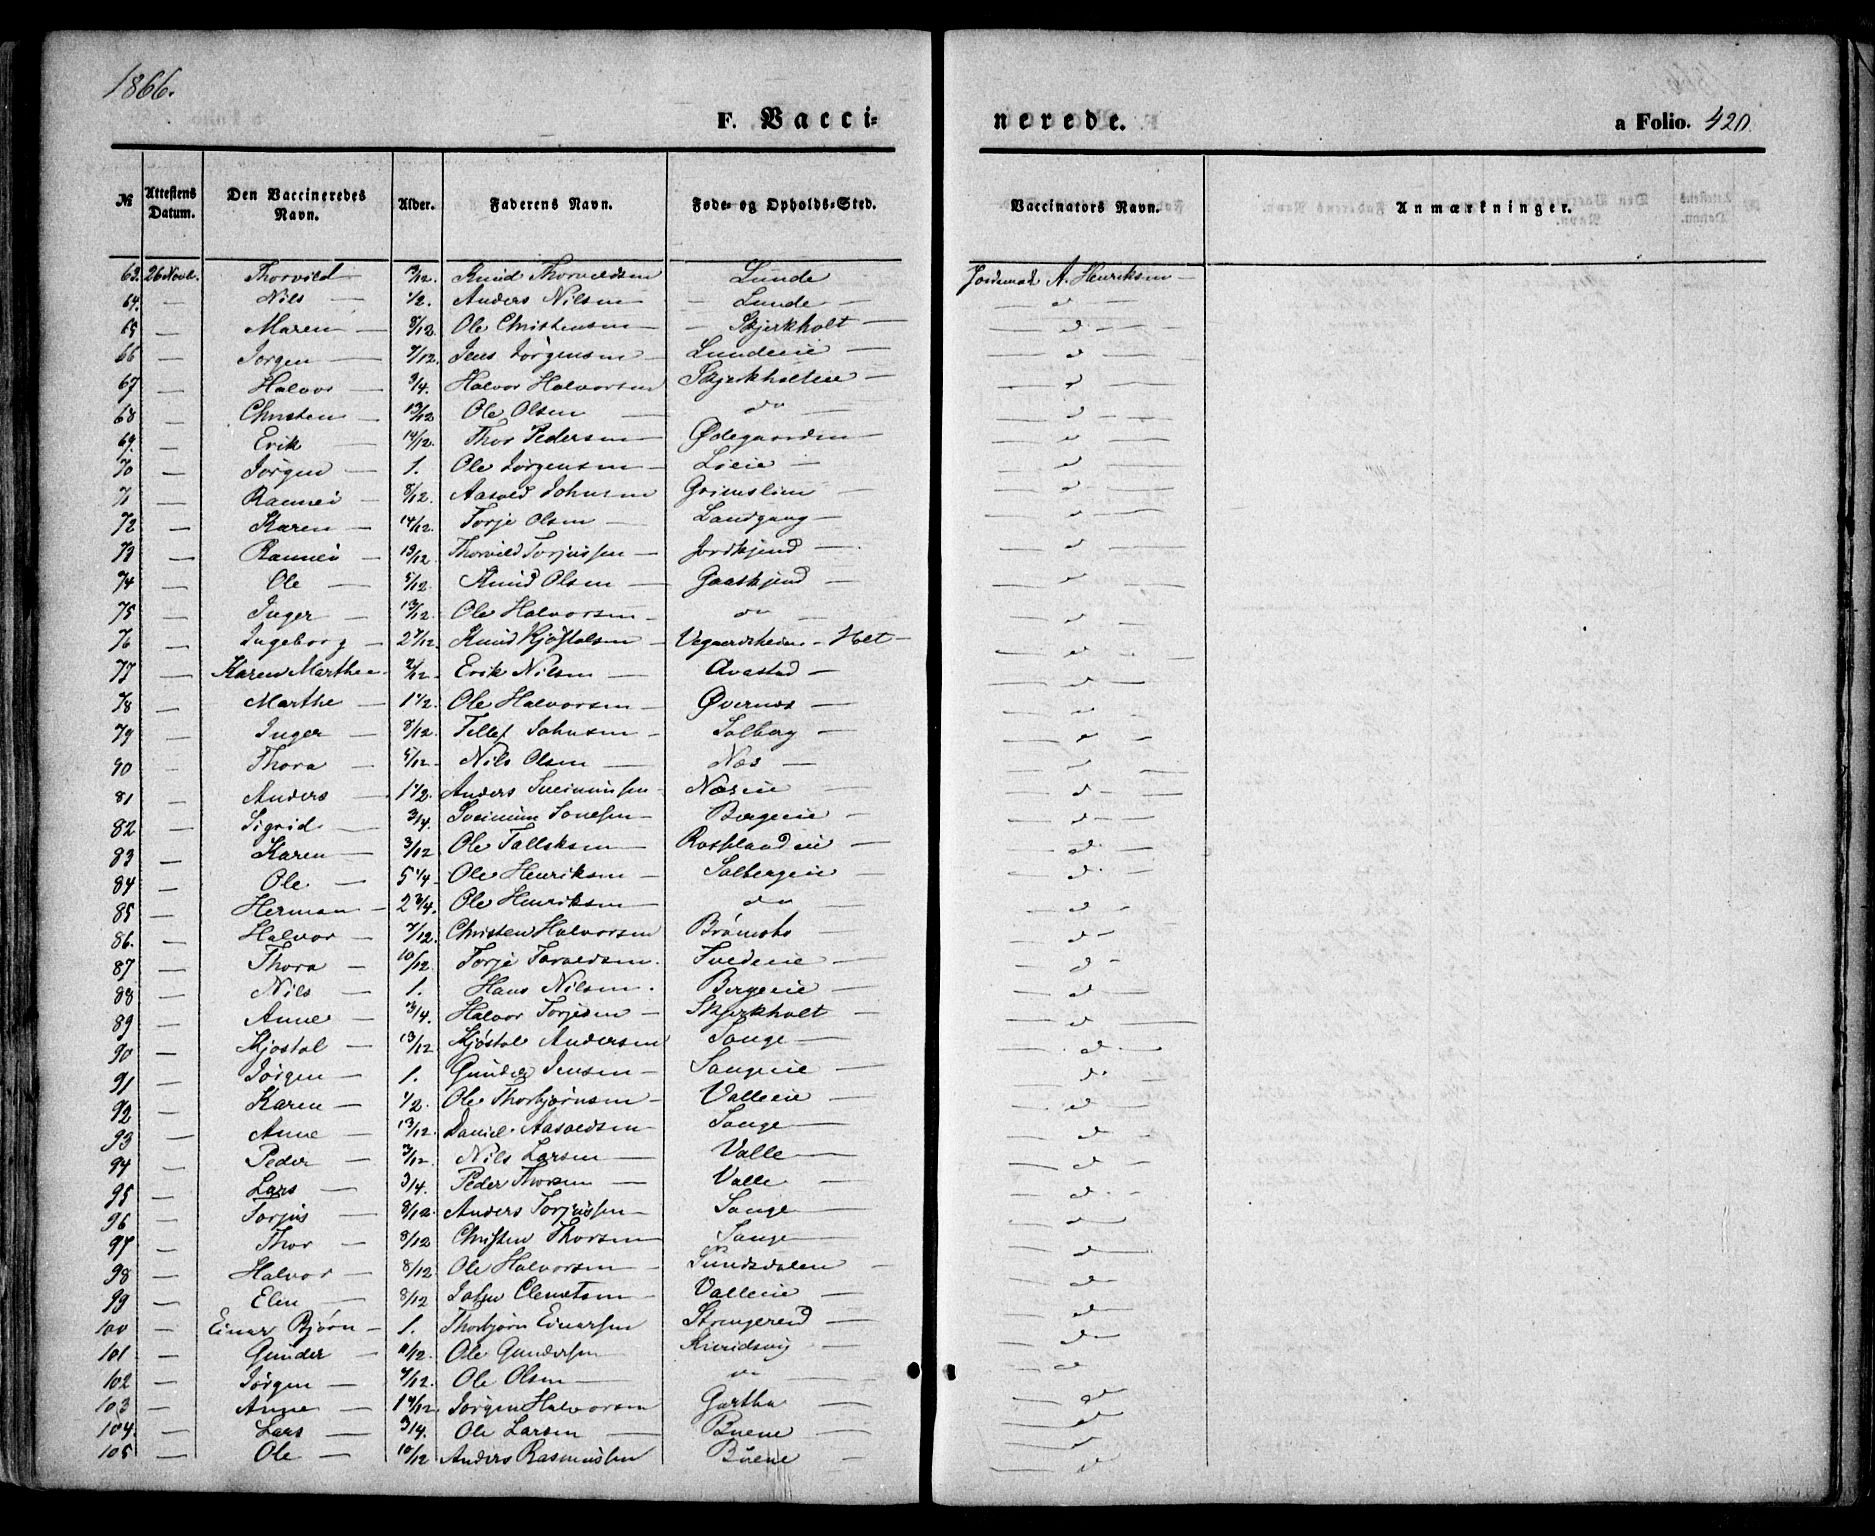 1866.
F. Vacci-
nerede.
a Folio. 420.
№ Attestens Datum. Den Vaccineredes Navn. Alder. Faderens Navn. Føde- og Opholds-Sted. Vaccinators Navn. Anmærkninger.
63. 26 Novb. Thorvild Knud Thorvildsen Lunde Jordemod. A. Henriksen
64. — Nils — 1/2. Anders Nilsen — Lunde — — d —
65 — Maren — 8/12. Ole Christensen — Skjerkholt — — d —
66 — Jørgen — 7/12. Jens Jørgensen — Lundeeie — — d —
67 — Halvor — 3/4. Halvor Halvorsen Skjerkholteie — — d —
68 — Christen — 13/12 Ole Olsen — do — — d —
69. — Erik — 14/12. Thor Pedersen — Ødegaarden — — d —
70 — Jørgen — 1. Ole Jørgensen — Løeie — — d —
71 — Rannei — 8/12. Aasold Johnsen Grimslien — — d —
72 — Karen — 14/12. Torje Olsen — Landgang — — d —
73 — Rannei — 13/12 Thorvild Torjussen — Jordkjend — — d —
74 — Ole — 5/12 Knud Olsen — Gaaskjend — — d —
75 — Inger — 13/12 Ole Halvorsen — do — — d —
76 — Ingeborg — 2 7/12. Knud Kjøstolsen — Vegaardsheien — Holt — — d —
77 — Karen Marthe — Erik Nilsen — Avestad — — d —
78 — Marthe — 1 1/2. Ole Halvorsen — Øvernes — — d —
79 — Inger — 8/12. Tellef Johnsen — Solberg — — d —
80 — Thora — 5/12 — Nils Olsen — Næs — — d —
81 — Anders — 1 1/2. Anders Sveinunsen — Næseie — — d —
82 — Sigrid — 3/4. Sveinun Tonesen — Bergeie — — d —
83 — Karen — 3/12 Ole Tallaksen — Rosslandeie — — d —
84 — Ole — 5 1/4 — Ole Henriksen — Solbergeie — — d —
85 — Herman — 2 3/4. Ole Henriksen — do — — d —
86. — Halvor — 7/12. Christen Halvorsen Brømsbo — — d —
87 — Thora — 10/12 Torje Torvildsen. Tvedeeie — — d —
88 — Nils — 1. Hans Nilsen. Bergeeie — — d —
89 — Anne — 3/4. Halvor Torjesen — Skjerkholt — — d —
90 — Kjøstol — 13/12 Kjøstol Andersen Songe — — d —
91 — Jørgen — 1. Gunder Jensen — Songeeie — — d —
92 — Karen — 1/2. Ole Thorbjørnsen — Valleeie — — d —
93 — Anne — 13/12. Daniel Aasoldsen — Songe — — d —
94 — Peder — 3/12. Nils Larsen — Valle — — d —
95 — Lars — 3/4. Peder Thorsen — Valle — — d —
96 — Torjus 8/12. Anders Torjussen — Songe — — d —
97 — Thor — 8/12 Christen Thorsen Songe — — d —
98 — Halvor — 8/12 Ole Halvorsen — Sundsdalen — — d —
99 — Elen — 8/12 John Clemetsen — Valleeie — — d —
100 — Einar Bjørn — 1. Thorbjørn Einarsen Strengereid — — d —
101 — Gunder — Ole Gundersen Kveidsvig — — d —
102 — Jørgen — Ole Olsen — do — — d —
103 — Anne — Jørgen Halvorsen Gartha — — d —
104. — Lars — 3/4. Ole Larsen — Buene — — d —
105 — Ole — 10/12 Anders Rasmussen Buene — — d —